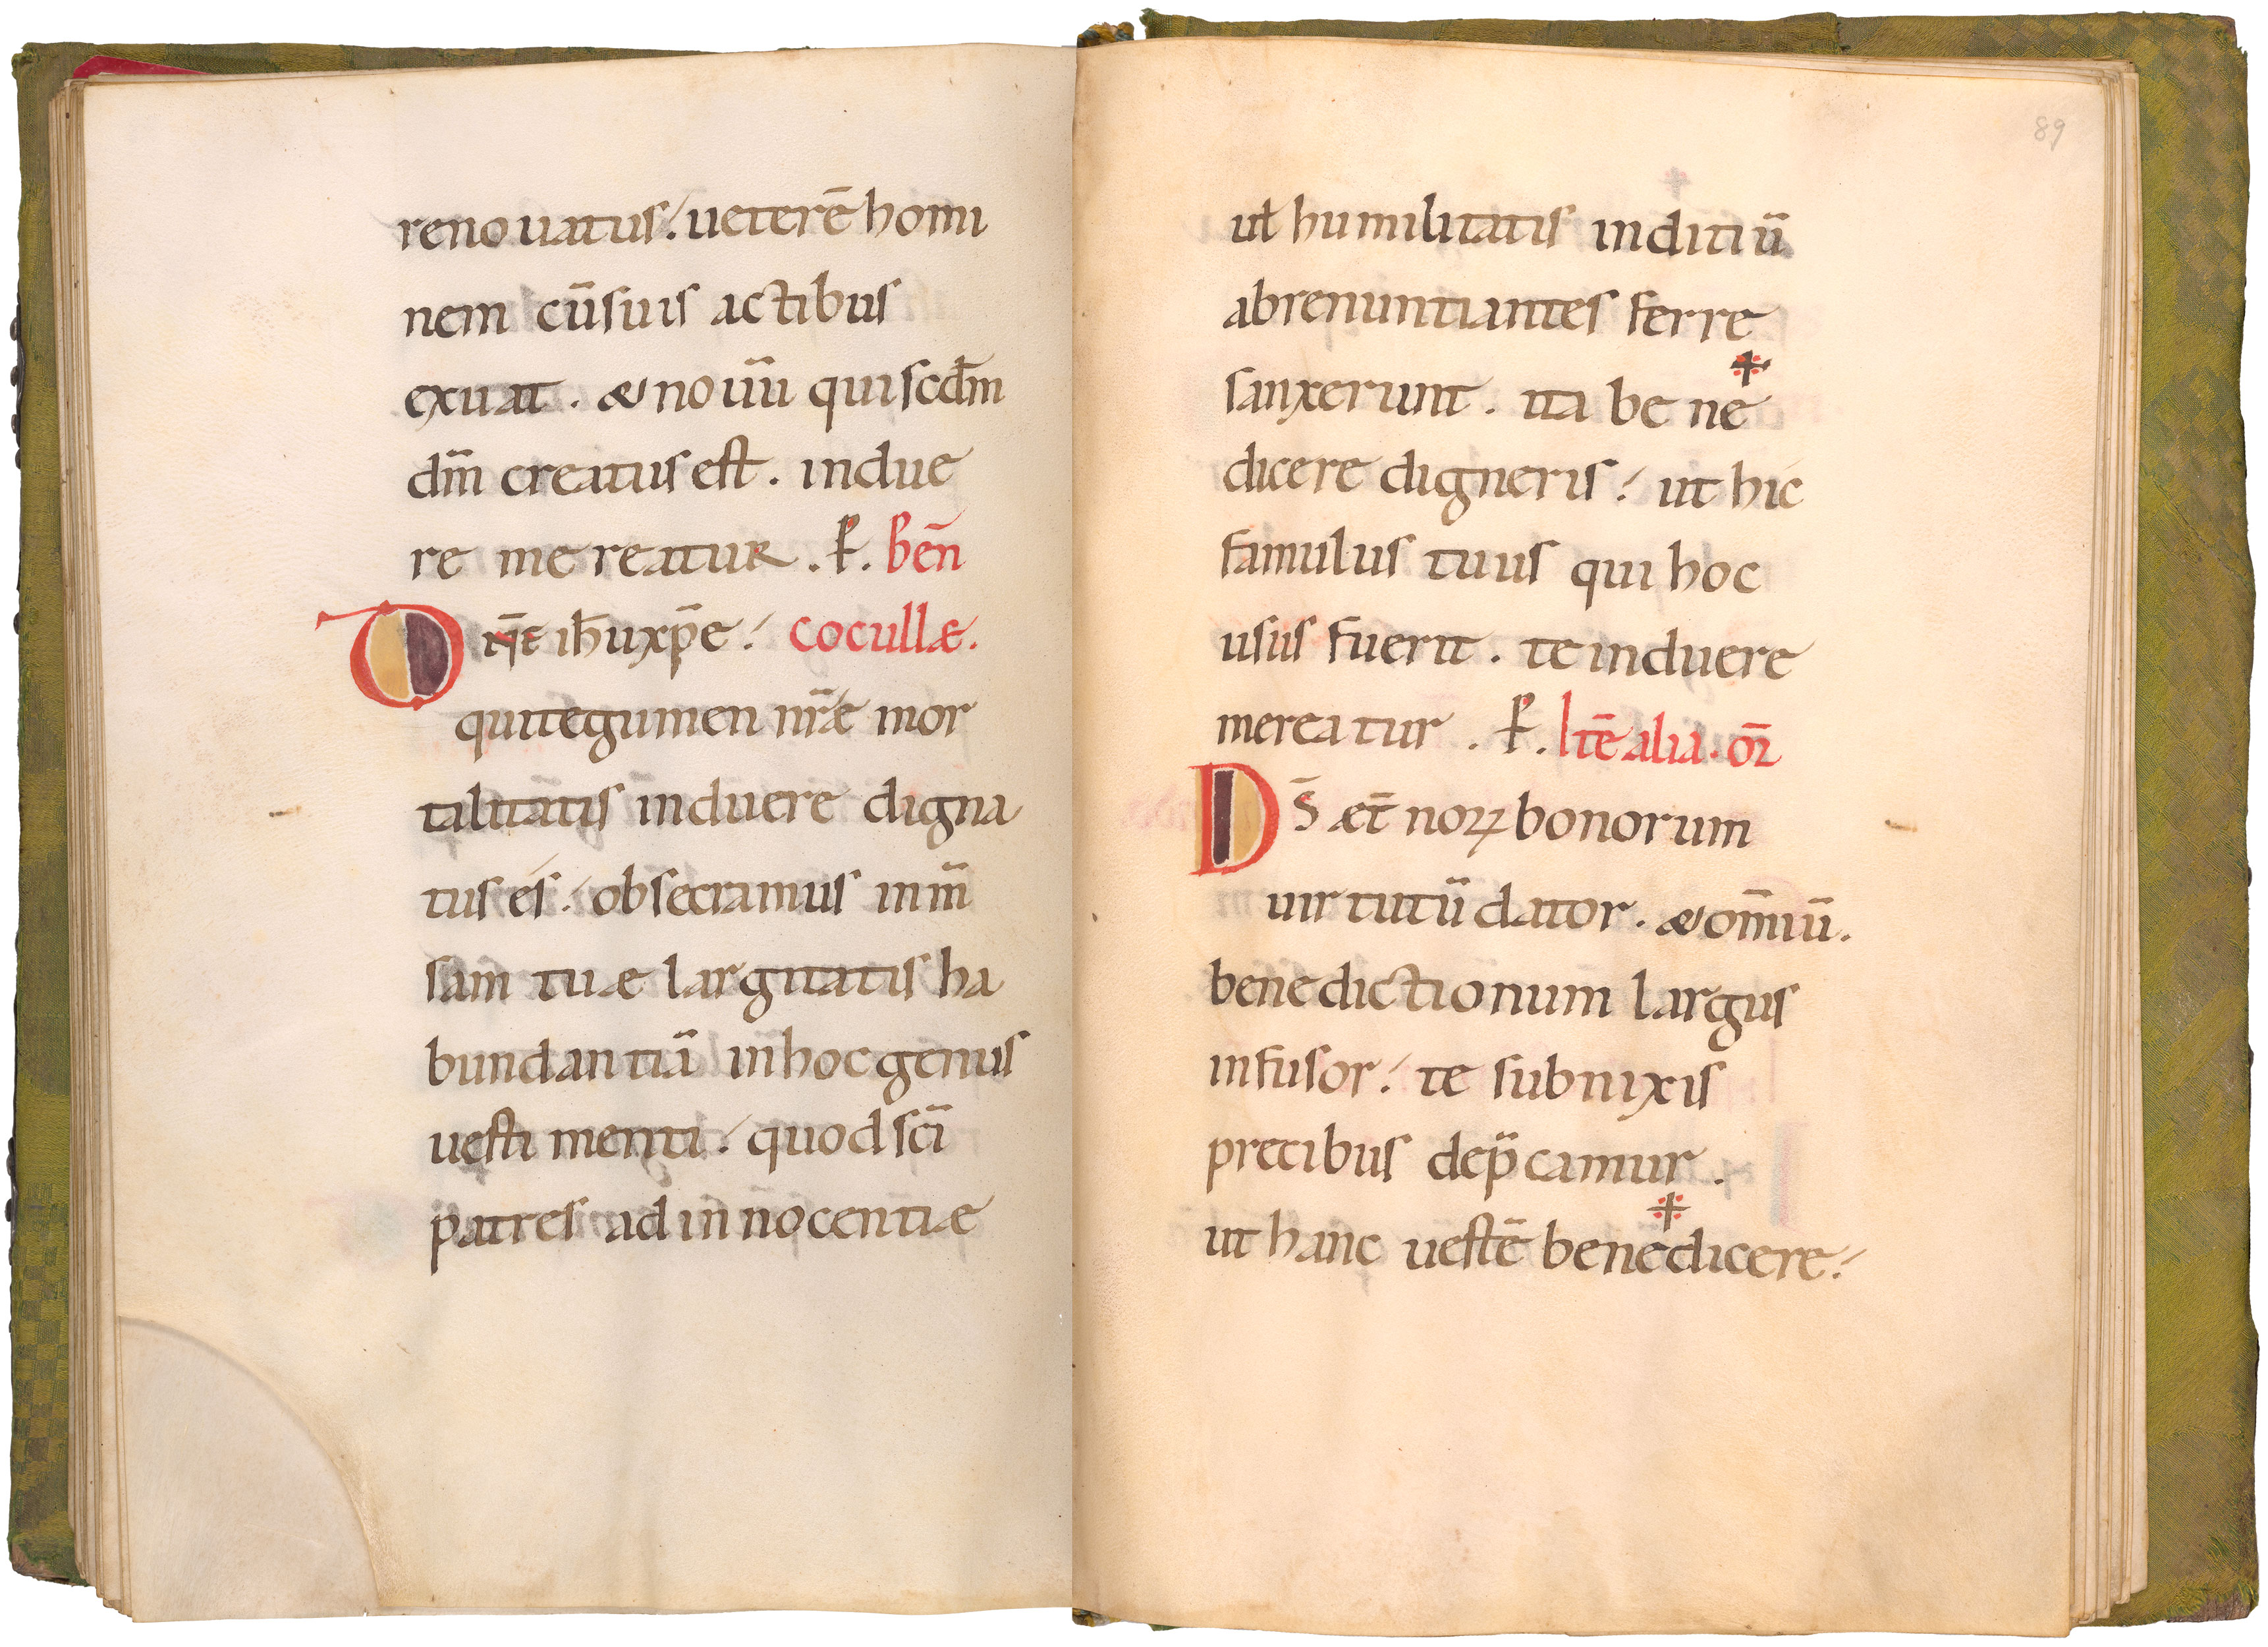 renouatus. ueterē homi
nem cū suis actibus
exuat. & nouū qui scdm̄
dm̄ creatus est. indue
re mereatur. P. bēn
Dn̄e ih̄u xp̄e. cocullæ.
qui tegumen nr̄æ mor
talitatis induere digna
tus es. obsecramus inm̄
sam tuæ largitatis ha
bundantiā in hoc genus
uestimenti. quod sc̄i
patres ad innocentiæ
89
uł humilitatis inditiū
abrenuntiantes ferre
sanxerunt. ita bene
✠
dicere digneris. ut hic
famulus tuus qui hoc
usus fuerit. te induere
mereatur. P. Itē alia. or̄
Ds̄ æt̄norꝝ bonorum
uirtutū dator. & om̄iū.
benedictionum largus
infusor. te subnixis
precibus dep̄camur.
ut hanc uestē bene✠dicere.